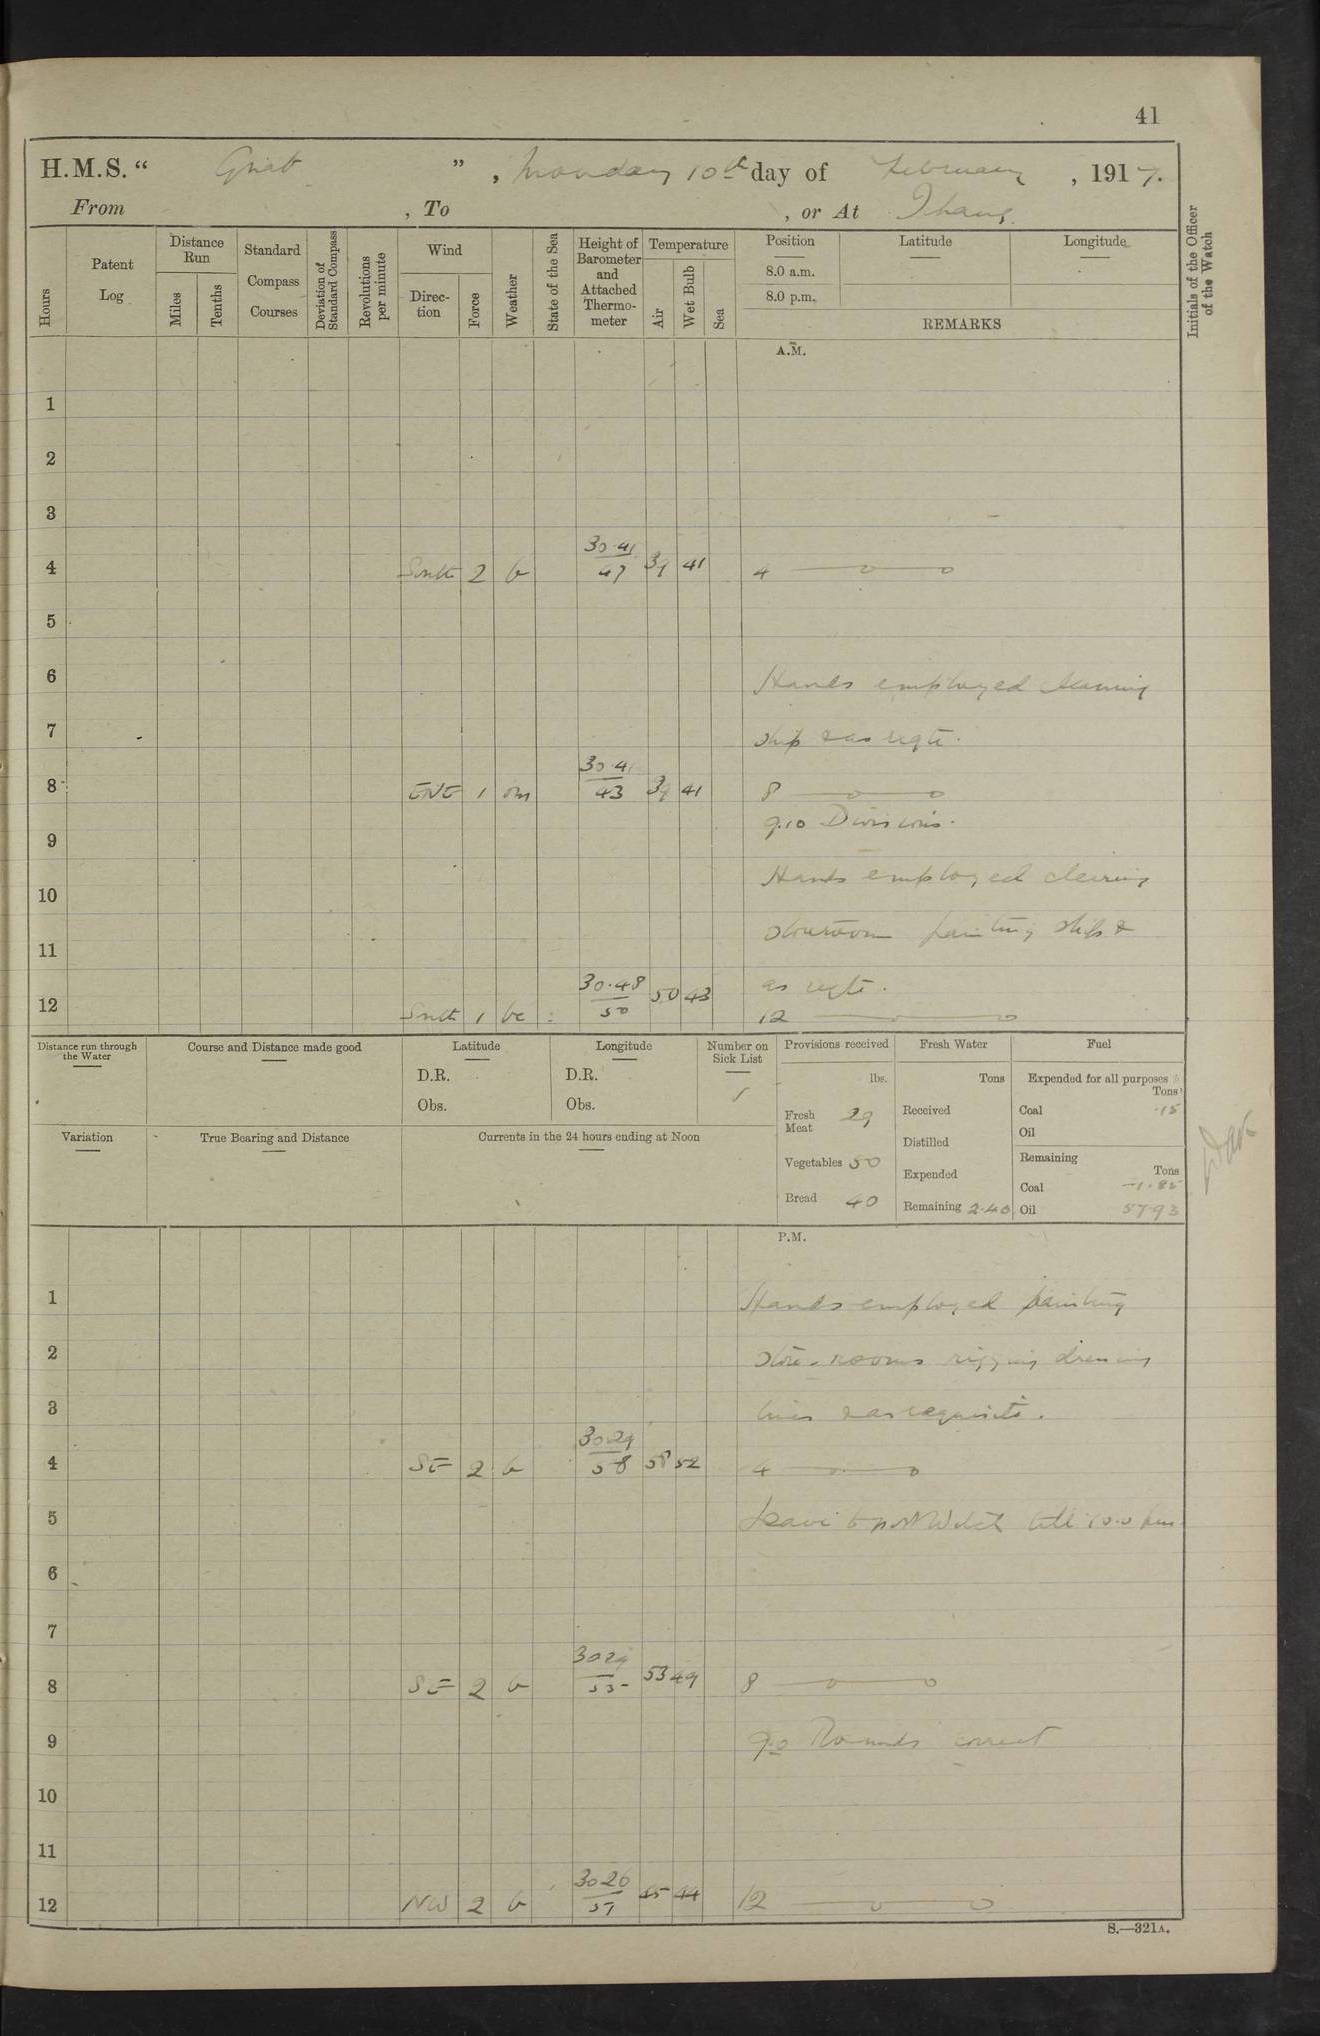 41
H.M.S. “ Gnat ” , Monday 10th day of February , 1917.
From , To , or At Ichang.
Hours
Patent Log
Distance Run
Miles
Tenths
Standard Compass Courses
Deviation of Standard Compass
Revolutions per minute
Wind
Direc-tion
Force
Weather
State of the Sea
Height of Barometer and Attached Thermo-meter
Temperature
Air
Wet Bulb
Sea
Position
8.0 a.m.
8.0 p.m.
Latitude
Longitude
REMARKS
Initials of the Officer of the Watch
A.M.
1
2
3
4 South 2 b 30.41 47 39 41 4
5
6 Hands employed cleaning
7 ship & as reqte.
8 ENE 1 om 30.41 43 39 41 8
9.10 Divisions.
9
10 Hands employed clearing
11 storeroom painting ship &
as reqte.
12 South 1 bc 30.48 50 50 43 12
Distance run through the Water
Course and Distance made good
Latitude
D.R.
Obs.
Longitude
D.R.
Obs.
Number on Sick List
1
Provisions received
lbs.
Fresh Meat 29
Vegetables 50
Bread 40
Fresh Water
Tons
Received
Distilled
Expended
Remaining 2.40
Fuel
Expended for all purposes
Tons
Coal .15
Oil
Remaining
Tons
Coal 1.85
Oil 57.93
Variation
True Bearing and Distance
Currents in the 24 hours ending at Noon
P.M.
1 Hands employed painting
2 store-rooms rigging dressing
3 lines & as requisite.
4 SE 2 b 30.29 58 58 52 4
5 Leave to port Watch till 10.0 pm
6
7
8 SE 2 b 30 29 55 53 49 8
9 9.0 Rounds correct
10
11
12 NW 2 b 30 26 51 45 44 12
S.—321A.